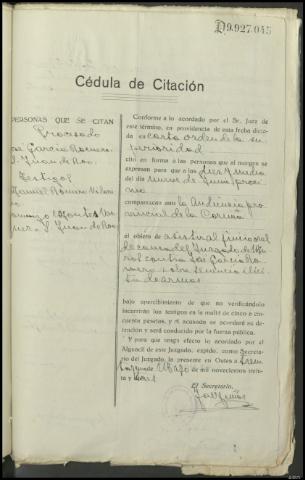 D9.927.045
Cédula de Citación
PERSONAS QUE SE CITAN
Procesado
José García Romero.
S. Juan de Roo.
Testigos
Manuel Romero
S. Juan de Roo
Conforme a lo acordado por el Sr. Juez de
este término, en providencia de esta fecha dicta-
da a carta orden de la su-
perioridad
cito en forma a las personas que al margen se
expresan para que a las diez y media
del día nueve de Junio próxi-
mo
comparezcan ante la Audiencia pro-
vincial de la Coruña
al objeto de asistir al juicio oral
de causa del Juzgado de
contra José García Ro-
mero, sobre tenencia ilíci-
ta de armas
bajo apercibimiento de que no verificándolo
incurrirán los testigos en la multa de cinco a cin-
cuenta pesetas, y el acusado se acordará su de-
tención y será conducido por la fuerza pública.
Y para que tenga efecto lo acordado por el
Alguacil de este Juzgado, expido, como Secreta-
rio del Juzgado, la presente en Outes a
de Mayo de mil novecientos trein-
ta y
El Secretario,